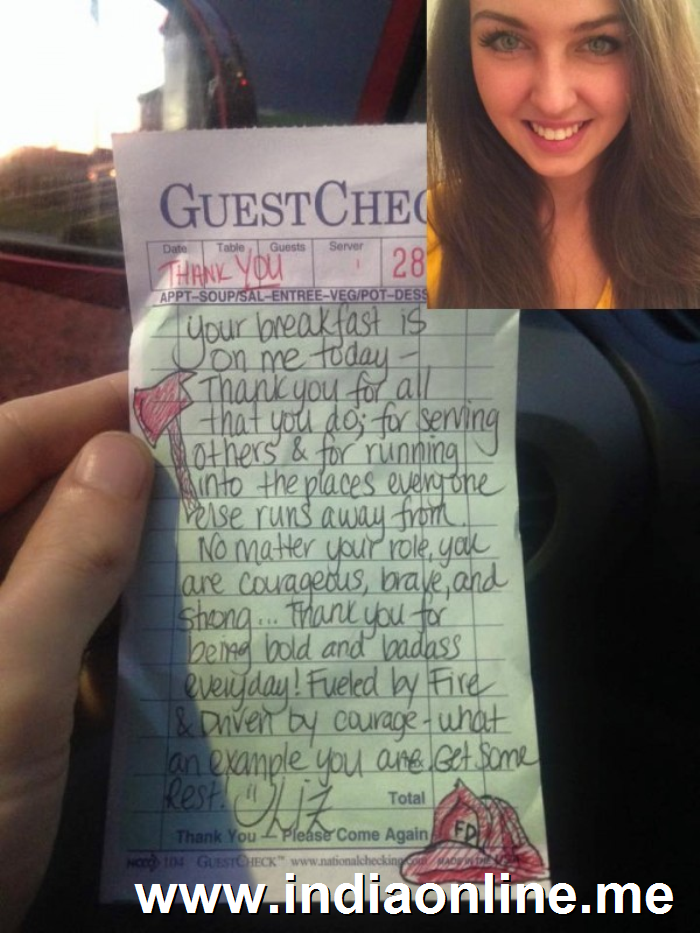 GUESTCHEC
Date Table Guests Server
THANK YOU 28
APPT-SOUP/SAL-ENTREE-VEG/POT-DESS
Your breakfast is
on me today -
Thank you for all
that you do; for serving
others & for running
into the places everyone
else runs away from.
No matter your role, you
are courageous, brave, and
strong... Thank you for
being bold and badass
everyday! Fueled by Fire
& Driven by courage - what
an example you are. Get some
Rest! Liz
Total
FD
Thank You - Please Come Again
104 GUESTCHECK™ www.nationalchecking.com MADE IN THE
www.indiaonline.me